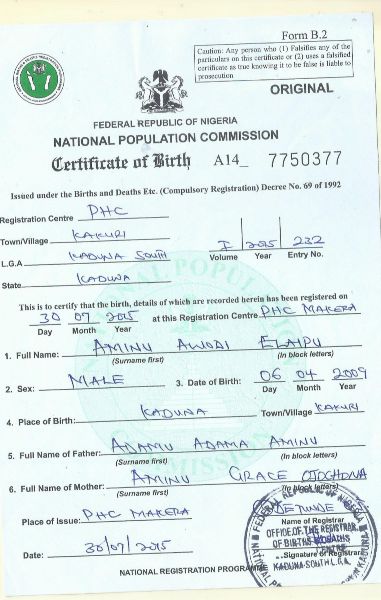 Form B.2
Caution: Any person who (1) Falsifies any of the
particulars on this certificate or (2) uses a falsified
certificate as true knowing it to be false is liable to
prosecution
ORIGINAL
FEDERAL REPUBLIC OF NIGERIA
NATIONAL POPULATION COMMISSION
Certificate of Birth A14_ 7750377
Issued under the Births and Deaths Etc. (Compulsory Registration) Decree No. 69 of 1992
Registration Centre PHC
Town/Village KAKURI
L.G.A KADUNA SOUTH
State KADUNA
I 2015 232
Volume Year Entry No.
This is to certify that the birth, details of which are recorded herein has been registered on
30 07 2015 at this Registration Centre PHC MAKERA
Day Month Year
1. Full Name: AMINU AWODI ELAIPU
(Surname first) (In block letters)
2. Sex: MALE 3. Date of Birth: 06 04 2009
Day Month Year
4. Place of Birth: KADUNA Town/Village KAKURI
5. Full Name of Father: ADAMU ADAMA AMINU
(Surname first) (In block letters)
6. Full Name of Mother: AMINU GRACE
(Surname first) (In block letters)
Place of Issue: PHC MAKERA
Name of Registrar
OFFICE OF THE REGISTRAR
OF BIRTHS
Signature of Registrar
KADUNA SOUTH L.G.A.
Date: 30/07/2015
NATIONAL REGISTRATION PROGRAMME